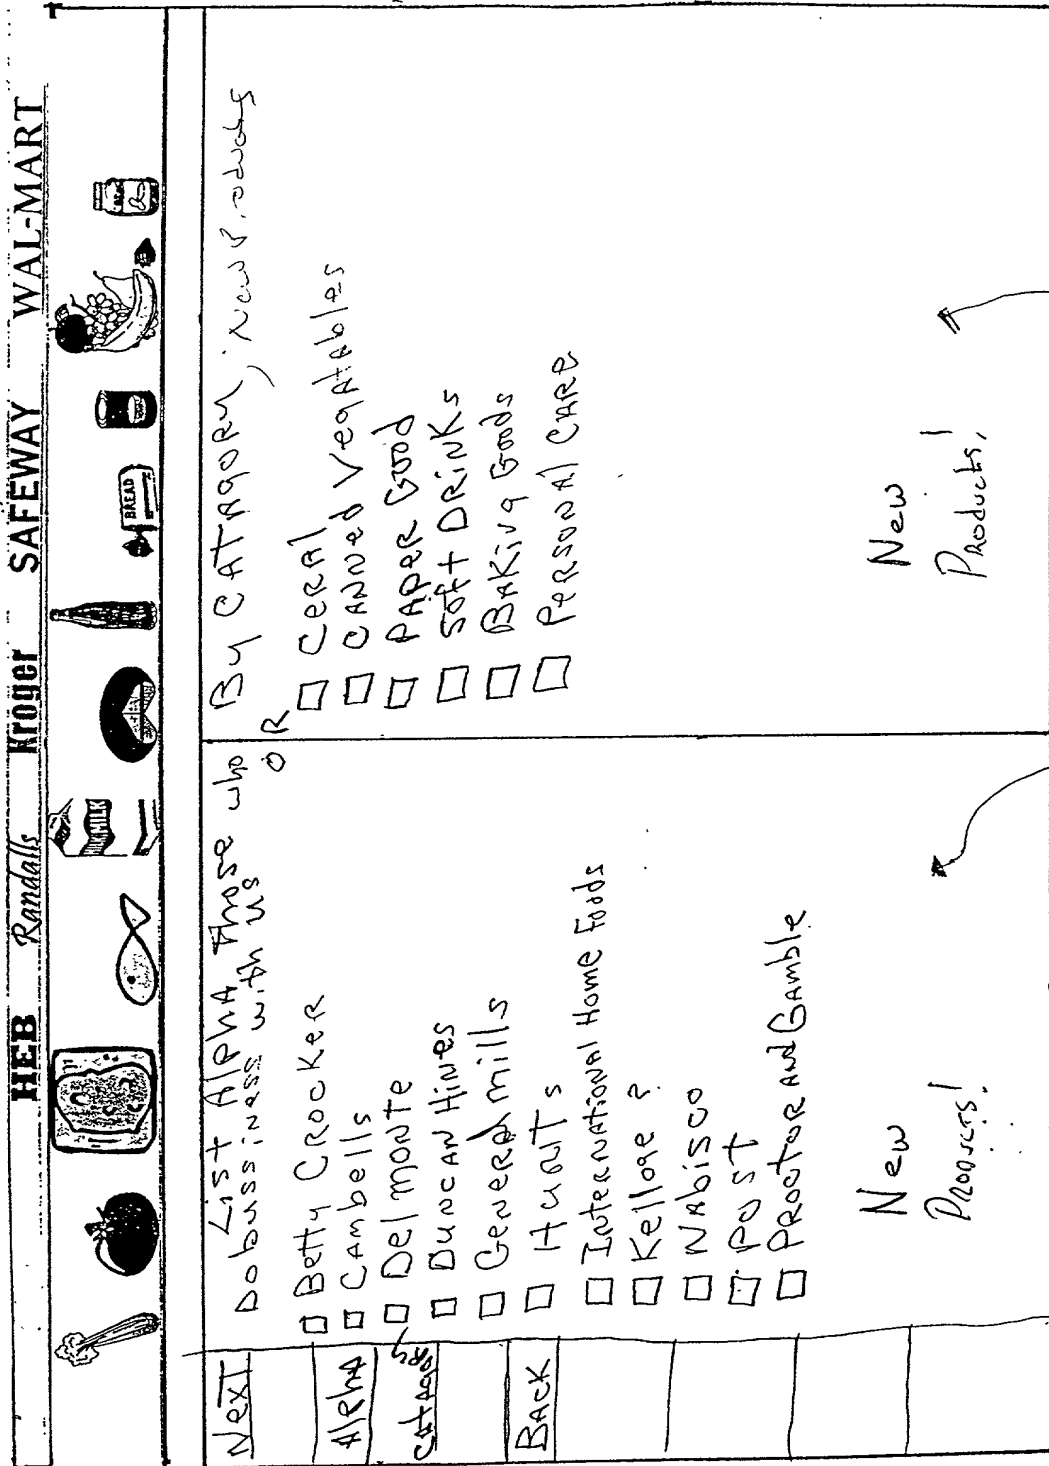 HEB Randalls Kroger SAFEWAY WAL-MART
MILK
BREAD
NEXT
Alpha
BACK
List Alpha those who
Do bussiness with us
Betty Crocker
Cambells
Delmonte
Duncan Hines
General mills
Hunts
International Home Foods
Kelloge ?
Nabisco
Post
Proctor and Gamble
New
Products!
OR
By Catagory, New Products
Ceral
Canned Vegatables
Paper Good
Soft Drinks
Baking Goods
Personal Care
New
Products!